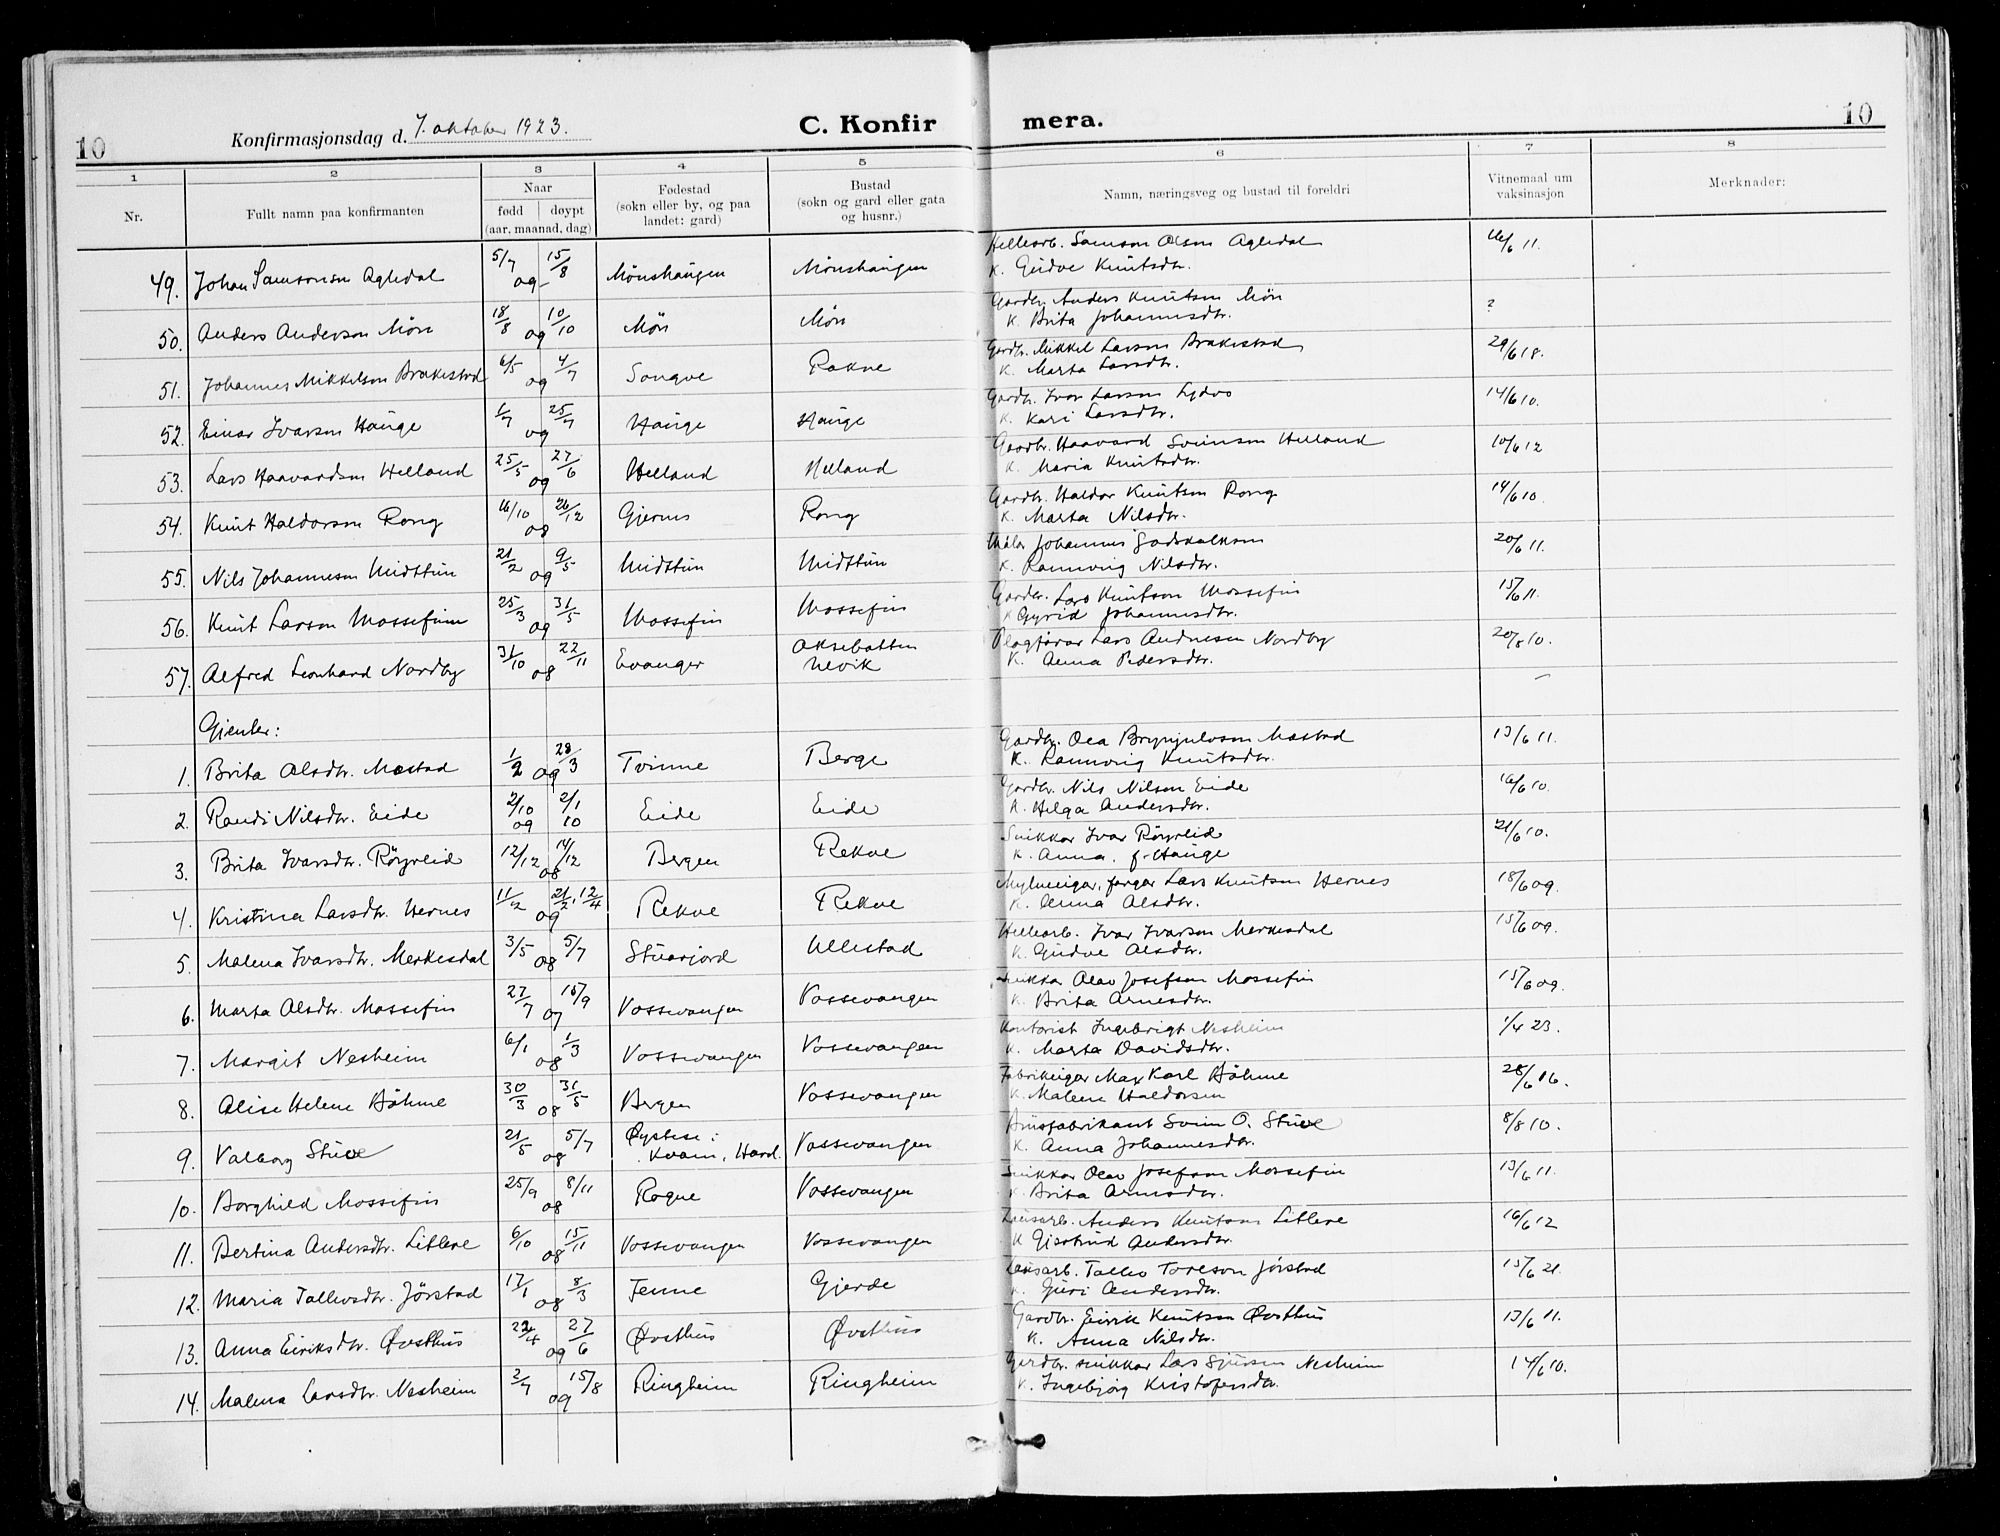 10
Konfirmasjonsdag d. 7. oktober 1923.
C. Konfirmera.
10
1 2 3 4 5 6 7 8
Nr.
Fullt namn paa konfirmanten
Naar
fødd | døypt
(aar, maanad, dag)
Fødestad
(sokn eller by, og paa
landet: gard)
Bustad
(sokn og gard eller gata
og husnr.)
Namn, næringsveg og bustad til foreldri
Vitnemaal um
vaksinasjon
Merknader:
49. Johan Samsonsn Agledal 5/7 09 15/8 Mönshaugen Mönshaugen Hellearb. Samson Olsen Agledal 16/6 11.
K. Gudve Knutsdtr.
50. Anders Anderson Mön 18/8 09 10/10 Mön Mön Gardbr. Anders Knutson Mön ?
K. Brita Johannesdtr.
51. Johannes Mikkelson Brakestad 6/5 09 4/7 Songve Rokne Gardbr. Mikkel Larson Brakestad 29/6 18.
K. Marta Larsdtr.
52. Einar Ivarson Hauge 1/7 09 25/7 Hauge Hauge Gardbr. Ivar Larson Lydvo 14/6 10.
K. Kari Larsdtr.
53. Lars Haavardson Helland 25/5 09 27/6 Helland Helland Gardbr. Haavard Sveinson Helland 10/6 12
K. Maria Knutsdtr.
54. Knut Haldorson Rong 16/10 08 26/12 Gjernes Rong Gardbr. Haldor Knutson Rong 14/6 10.
K. Marta Nilsdtr.
55. Nils Johanneson Midttun 21/2 09 9/5 Midttun Midttun Målar Johannes Godskalkson 20/6 11.
K. Rannveig Nilsdtr.
56. Knut Larson Mossefinn 25/3 09 31/5 Mossefin Mossefin Gardbr. Lars Knutson Mossefin 15/6 11.
K Gyrid Johannesdtr.
57. Alfred Leonhard Nordby 31/10 08 22/11 Evanger Aksebotten
Ulvik Lars Andresen Nordby 20/8 10.
K. Anna Pedersdtr.
Gjentер:
1. Brita Olsdtr. Mæstad 1/2 09 28/3 Tvinne Berge Gardbr. Ola Brynjulvson Mæstad 13/6 11.
K. Rannveig Knutsdtr.
2. Randi Nilsdtr. Eide 2/10 09 2/1 10 Eide Eide Gardbr. Nils Nilson Eide 16/6 10.
K. Helga Andersdtr.
3. Brita Ivarsdtr. Röyrlid 12/12 08 14/12 Bergen Rekve Snikkar Ivar Röyrlid 21/6 10.
K. Anna, f. Hauge
4. Kristina Larsdtr. Hernes 11/2 09 21/2, 12/4 Rekve Rekve Mylneeigar, fargar Lars Knutson Hernes 18/6 09.
K. Anna Olsdtr.
5. Malena Ivarsdtr. Merkesdal 3/5 08 5/7 Stuarjord Ullestad Hellearb. Ivar Ivarson Merkesdal 15/6 09.
K. Gudve Olsdtr.
6. Marta Olsdtr. Mossefin 27/7 07 15/9 Vossevangen Vossevangen Snikkar Olav Josefson Mossefin 15/6 09.
K. Brita Arnesdtr.
7. Margit Nesheim 6/1 08 1/3 Vossevangen Vossevangen Kontorist Ingebrigt Nesheim 1/4 23.
K. Marta Davidsdtr.
8. Alise Helene Böhme 30/3 08 31/5 Bergen Vossevangen Fabrikeigar Max Karl Böhme 28/6 16.
K. Malene Haldorsen
9. Valborg Stuve 21/5 08 5/7 Øystese i
Kvam, Hard. Vossevangen Brusfabrikant Svein O. Stuve 8/8 10.
K. Anna Johannesdtr.
10. Borghild Mossefin 25/9 08 8/11 Rogne Vossevangen Snikkar Olav Josefson Mossefin 13/6 11.
K. Brita Arnesdtr.
11. Bertina Andersdtr. Litlere 6/10 08 15/11 Vossevangen Vossevangen Lausarb. Anders Knutson Litlere 16/6 12
K Gjertrud Andersdtr.
12. Maria Tollevsdtr. Jörstad 17/1 08 8/3 Tenne Gjerde Lausarb. Tollev Toreson Jörstad 15/6 21.
K. Guri Andersdtr.
13. Anna Eiriksdtr. Øvsthus 22/4 09 27/6 Øvsthus Øvsthus Gardbr. Eirik Knutson Øvsthus 13/6 11.
K. Anna Nilsdtr.
14. Malena Larsdtr. Nesheim 2/7 09 15/8 Ringheim Ringheim Gardbr. snikkar Lars Sjurson Nesheim 14/6 10.
K. Ingebjörg Kristofersdtr.